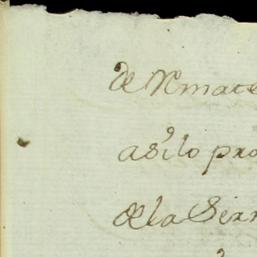 de Nmate
asilo pro
dela Sier